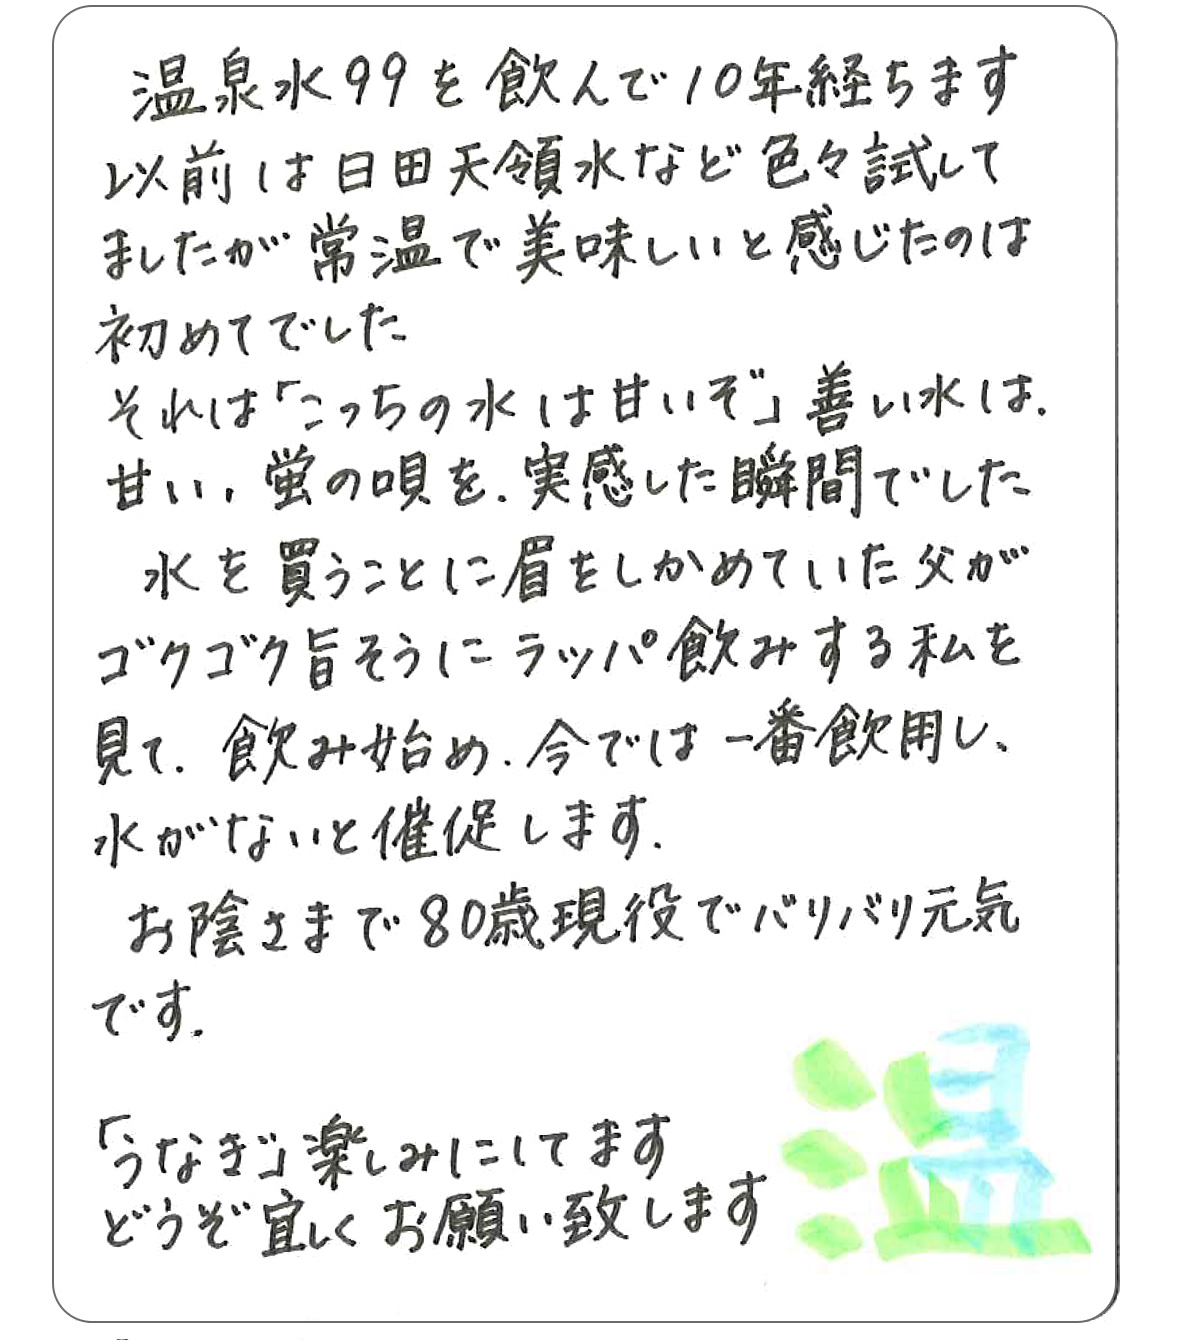 温泉水99を飲んで10年経ちます
以前は日田天領水など色々試して
ましたが常温で美味しいと感じたのは
初めてでした
それは「こっちの水は甘いぞ」善い水は、
甘い、蛍の唄を、実感した瞬間でした
水を買うことに眉をしかめていた父が
ゴクゴク旨そうにラッパ飲みする私を
見て、飲み始め、今では一番飲用し、
水がないと催促します。
お陰さまで80歳現役でバリバリ元気
です。
「うなぎ」楽しみにしてます
どうぞ宜しくお願い致します
温